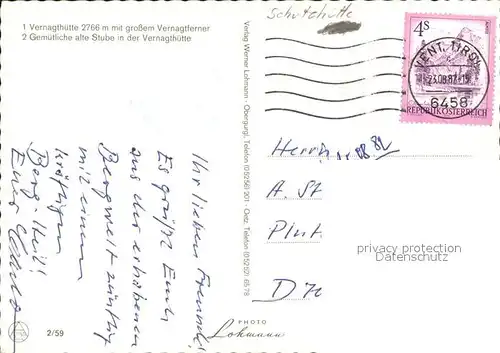 1 Vernagthütte 2766 m mit großem Vernagtferner
2 Gemütliche alte Stube in der Vernagthütte
Schutzhütte
4S
REPUBLIK ÖSTERREICH
VENT, TIROL
23.08.82-15
6458
Verlag Werner Lohmann · Obergurgl, Telefon (05256) 201 - Oetz, Telefon (05252) 6578
Ihr lieben Freunde,
Es grüßt Euch
aus der erhabenen
Bergwelt zünftig
mit einem
kräftigen
Berg-Heil!
Euer
Herrn
08 82
A. St
D
privacy protection
Datenschutz
PHOTO
Lohmann
2/59